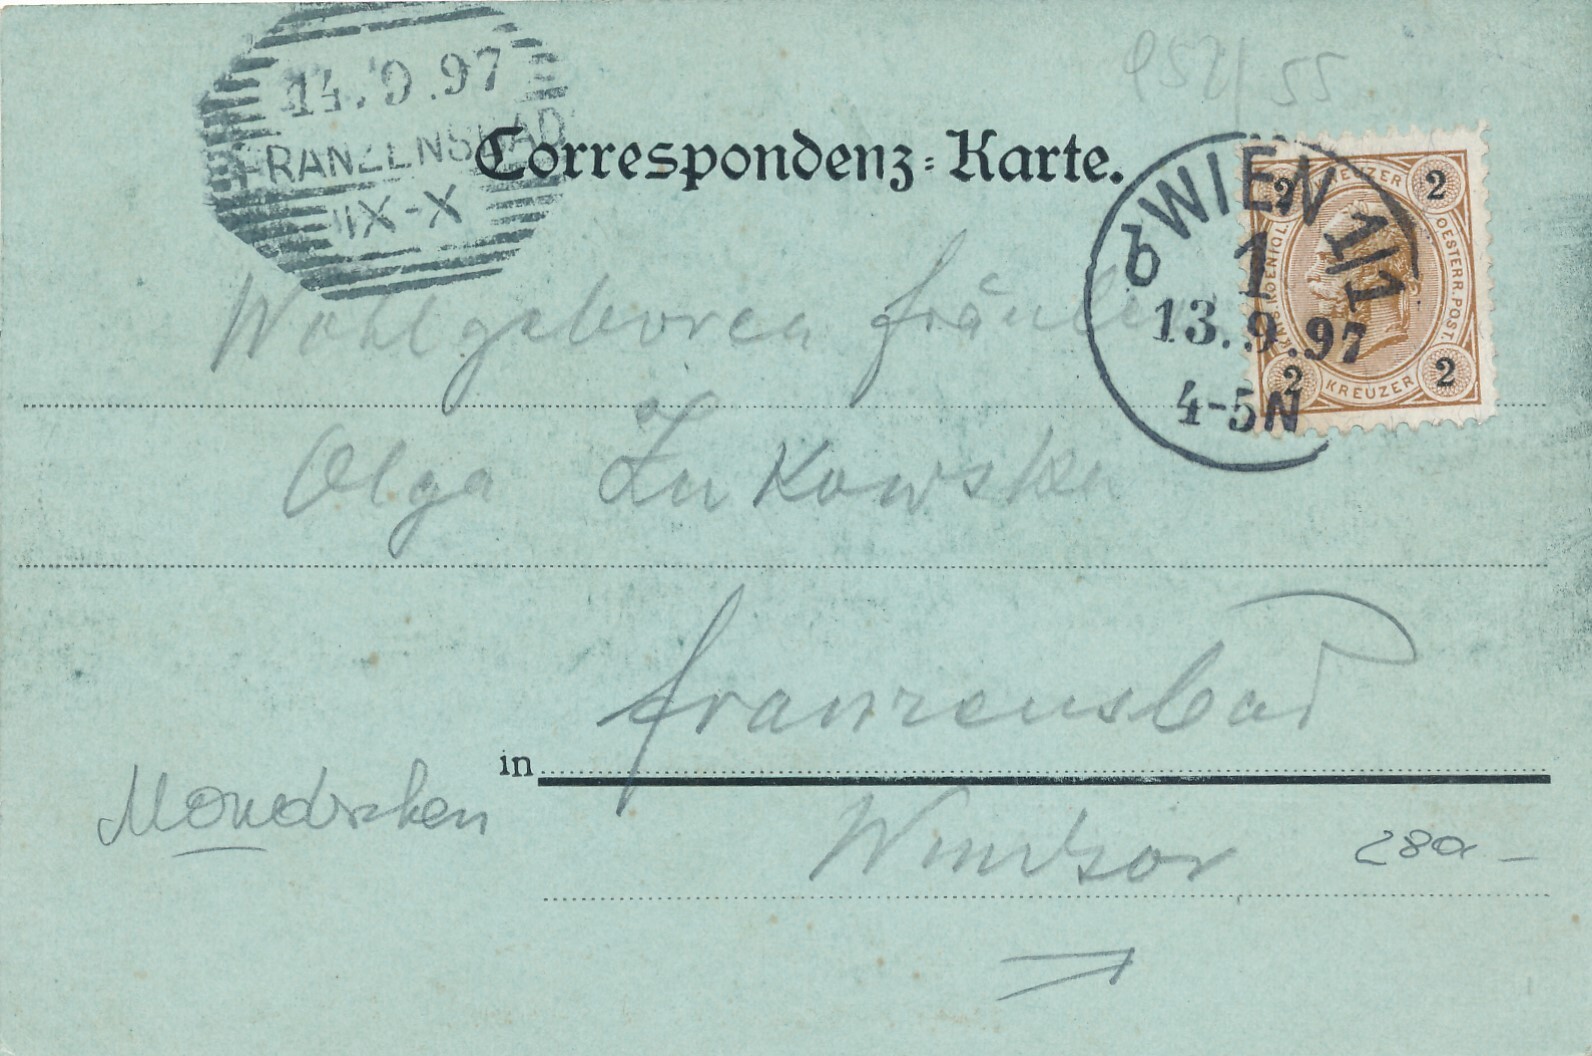 952/55
14.9.97
FRANZENSBAD
IX-X
Correspondenz-Karte.
WIEN 1/1
1
13.9.97
4-5N
2 KREUZER 2
OESTERR. POST.
2 KREUZER 2
Wohlgeboren Fräulein
Olga Żukowska
in Franzensbad
Windsor
280 –